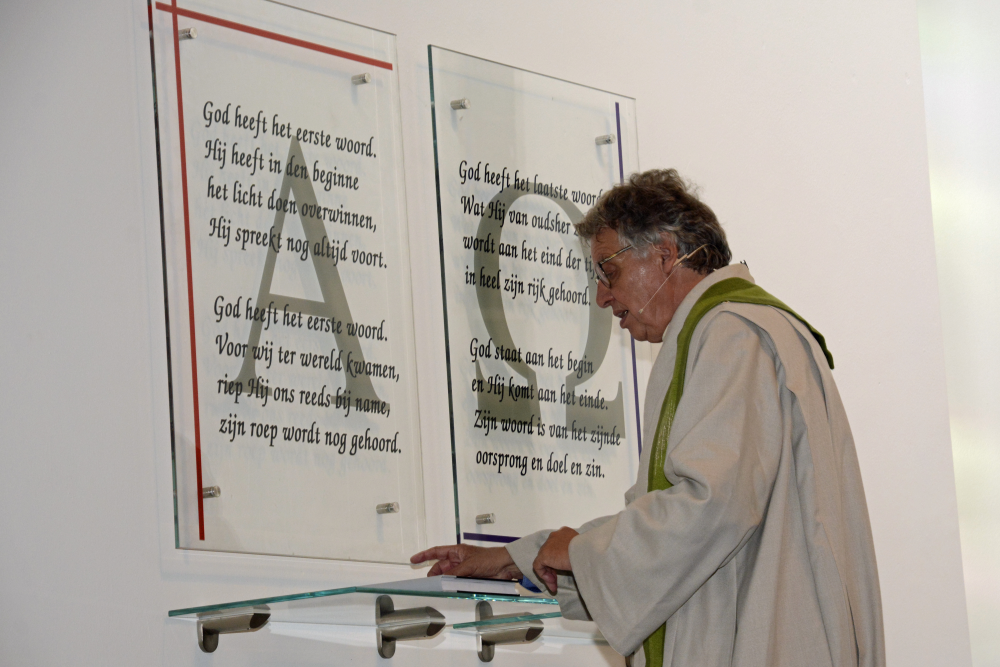 A
God heeft het eerste woord.
Hij heeft in den beginne
het licht doen overwinnen,
Hij spreekt nog altijd voort.
God heeft het eerste woord.
Voor wij ter wereld kwamen,
riep Hij ons reeds bij name,
zijn roep wordt nog gehoord.
Ω
God heeft het laatste woord
Wat Hij van oudsher
wordt aan het eind der
in heel zijn rijk gehoord.
God staat aan het begin
en Hij komt aan het einde.
Zijn woord is van het zijnde
oorsprong en doel en zin.